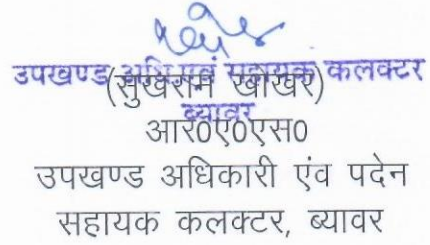 उपखण्ड अधि एवं सहायक कलक्टर
(सुखराम खोखर)
ब्यावर
आर0ए0एस0
उपखण्ड अधिकारी एंव पदेन
सहायक कलक्टर, ब्यावर